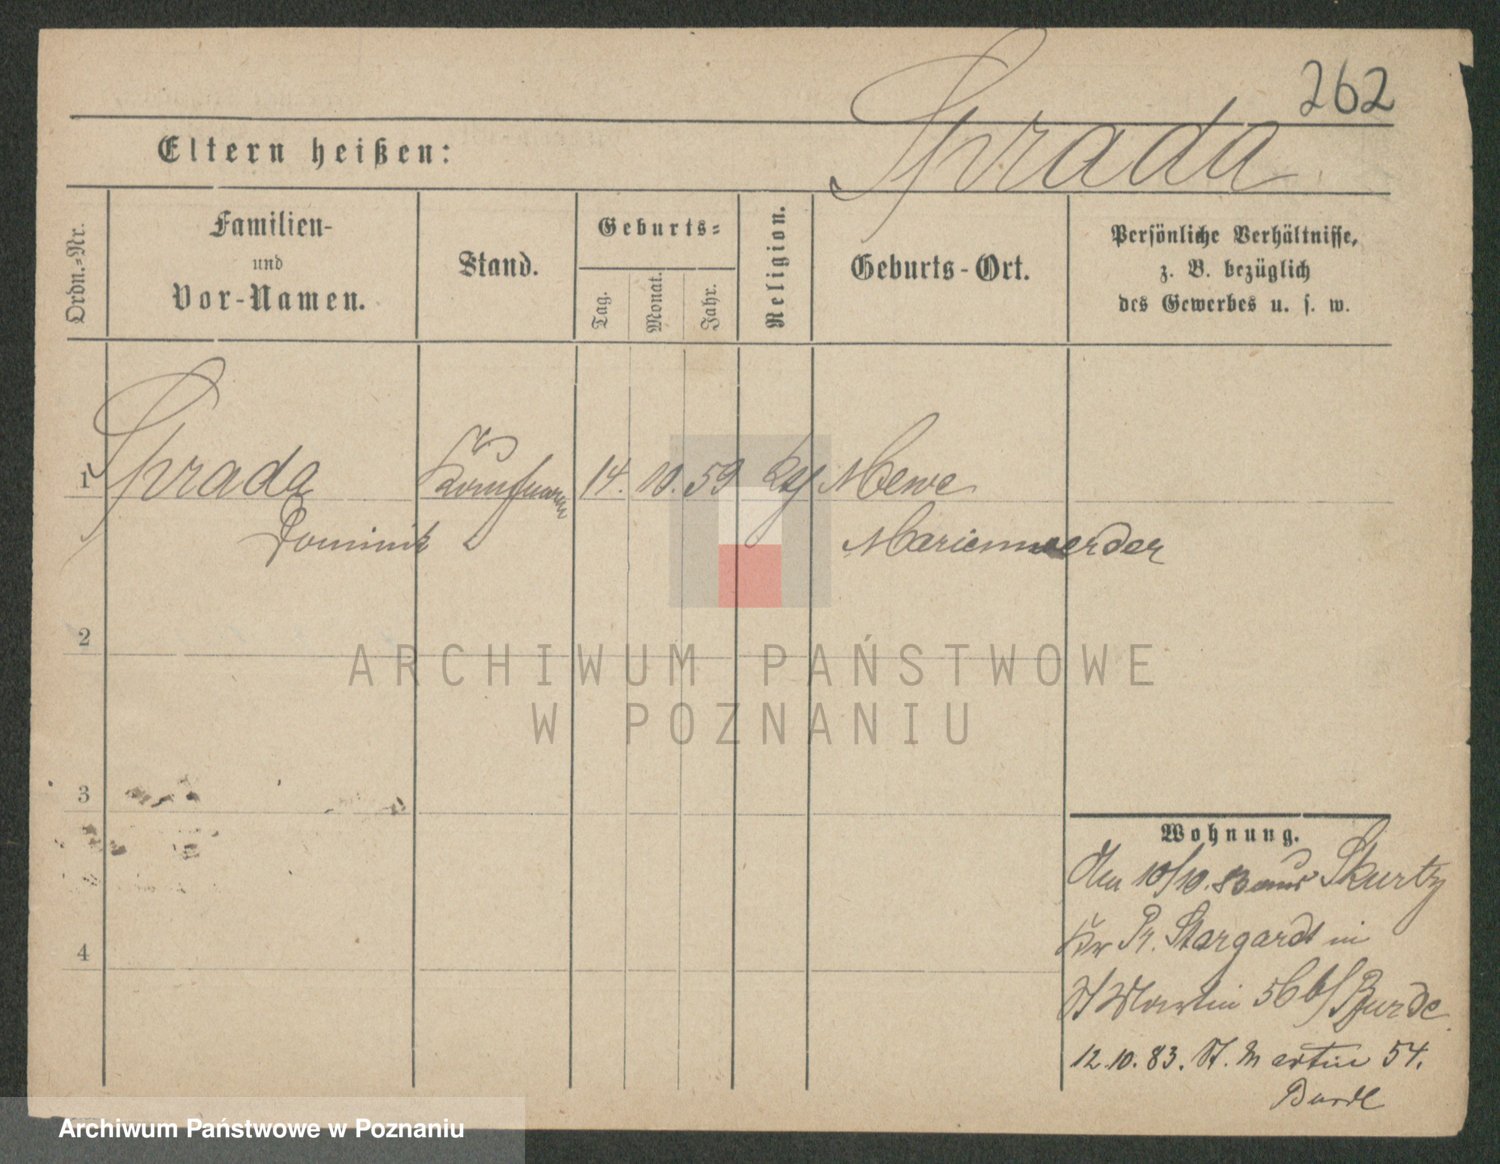 262
Sprada
Eltern heißen:
Ordn.-Nr.
Familien-
und
Vor-Namen.
Stand.
Geburts-
Tag.
Monat.
Jahr.
Religion.
Geburts-Ort.
Persönliche Verhältnisse,
z. B. bezüglich
des Gewerbes u. s. w.
1 Sprada Kaufmann 14. 10. 59 kth Mewe
Dominik Marienwerder
2
ARCHIWUM PAŃSTWOWE
W POZNANIU
3
Wohnung.
Den 10/10. 83 aus Skurtz
Kr Pr. Stargardt in
4
St Martin 56 b/
12.10.83. St. Martin 54.
Archiwum Państwowe w Poznaniu